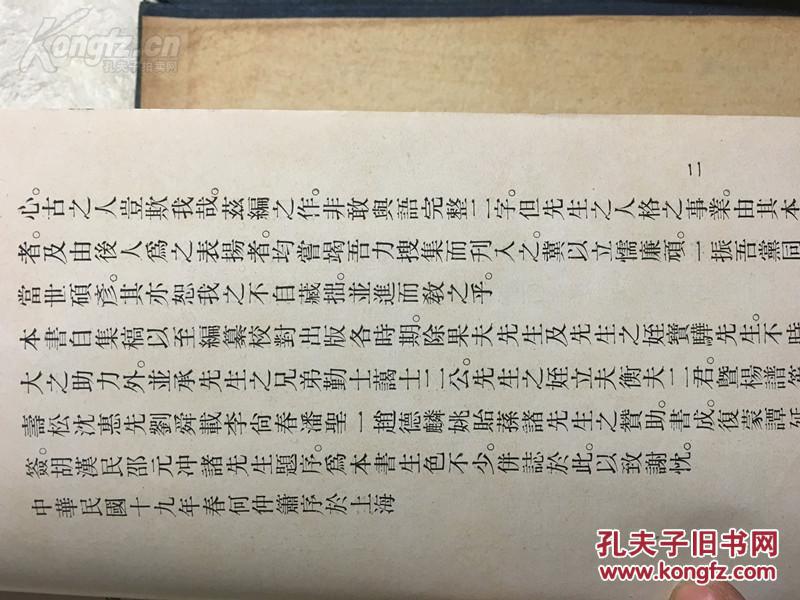 Kongfz.cn
孔夫子拍卖网
二
心。古之人豈欺我哉。茲編之作。非敢與語完整二字。但先生之人格之事業。由其本
者。及由後人爲之表揚者。均嘗竭吾力搜集而刊入之。冀以立懦廉頑。一振吾黨同
當世碩彥。其亦恕我之不自藏拙。並進而敎之乎。
本書自集稿以至編纂校對出版各時期。除果夫先生及先生之姪寶驊先生。不時
大之助力外。並承先生之兄弟勤士藹士二公。先生之姪立夫衡夫二君。暨楊譜笙
壽松沈惠先劉舜載李尙春潘聖一趙德麟姚貽蓀諸先生之贊助。書成。復蒙譚延
簽。胡漢民邵元冲諸先生題序。爲本書生色不少。併誌於此。以致謝忱。
中華民國十九年春何仲簫序於上海
孔夫子旧书网
www.kongfz.com